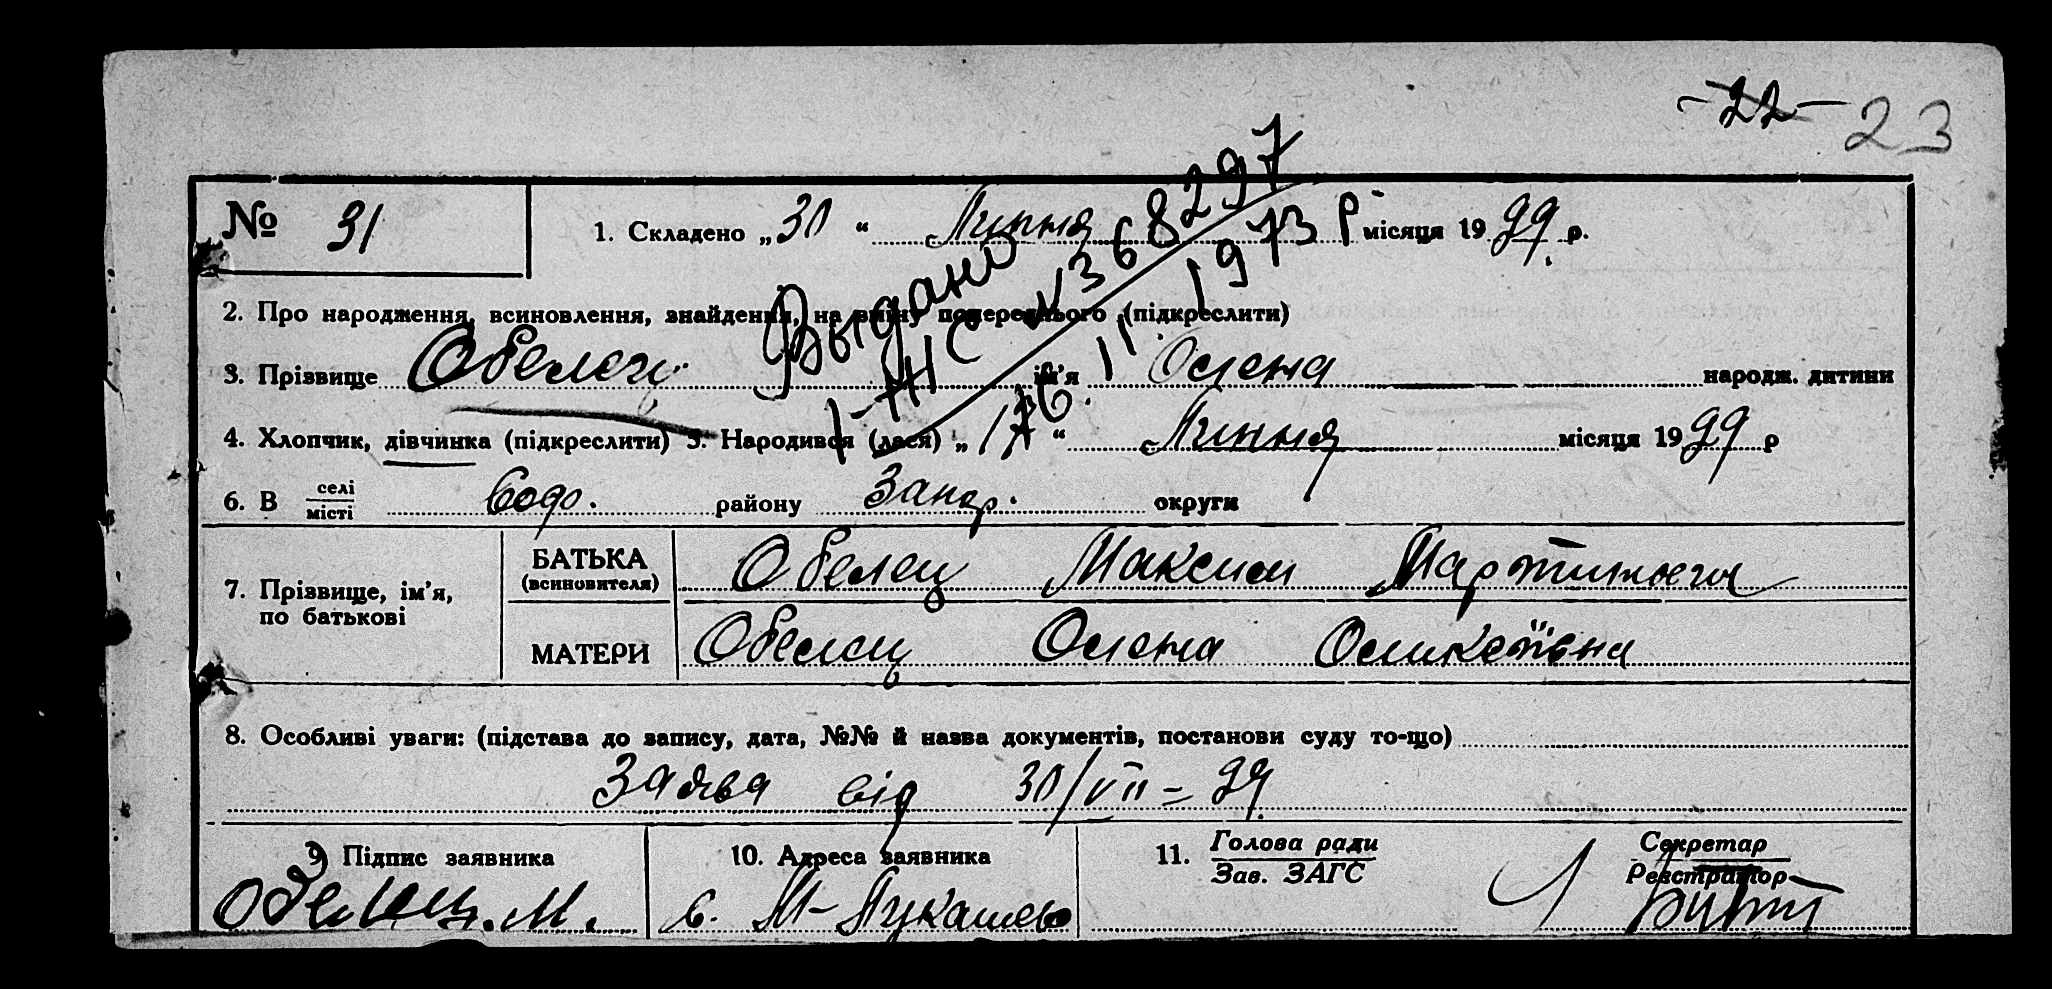 -22- 23
№ 31
1. Складено „30“ Липня місяця 1929 р.
Выдано
I-ЖС №368297
16.11.1973 р
2. Про народження, всиновлення, знайдення, на зміну попереднього (підкреслити)
3. Прізвище Обелец ім'я Олена народж. дитини
4. Хлопчик, дівчинка (підкреслити) 5. Народився (лася) „17“ Липня місяця 1929 р
6. В селі місті Водр. району Запор. округи
7. Прізвище, ім'я, по батькові
БАТЬКА (всиновителя) Обелец Максим Мартинович
МАТЕРИ Обелец Олена Оликсіївна
8. Особливі уваги: (підстава до запису, дата, №№ й назва документів, постанови суду то-що)
Заява від 30/VII-29
9 Підпис заявника 10. Адреса заявника 11. Голова ради Зав. ЗАГС Секретар Реєстратор
Обелец. М. с. М-Лукашево